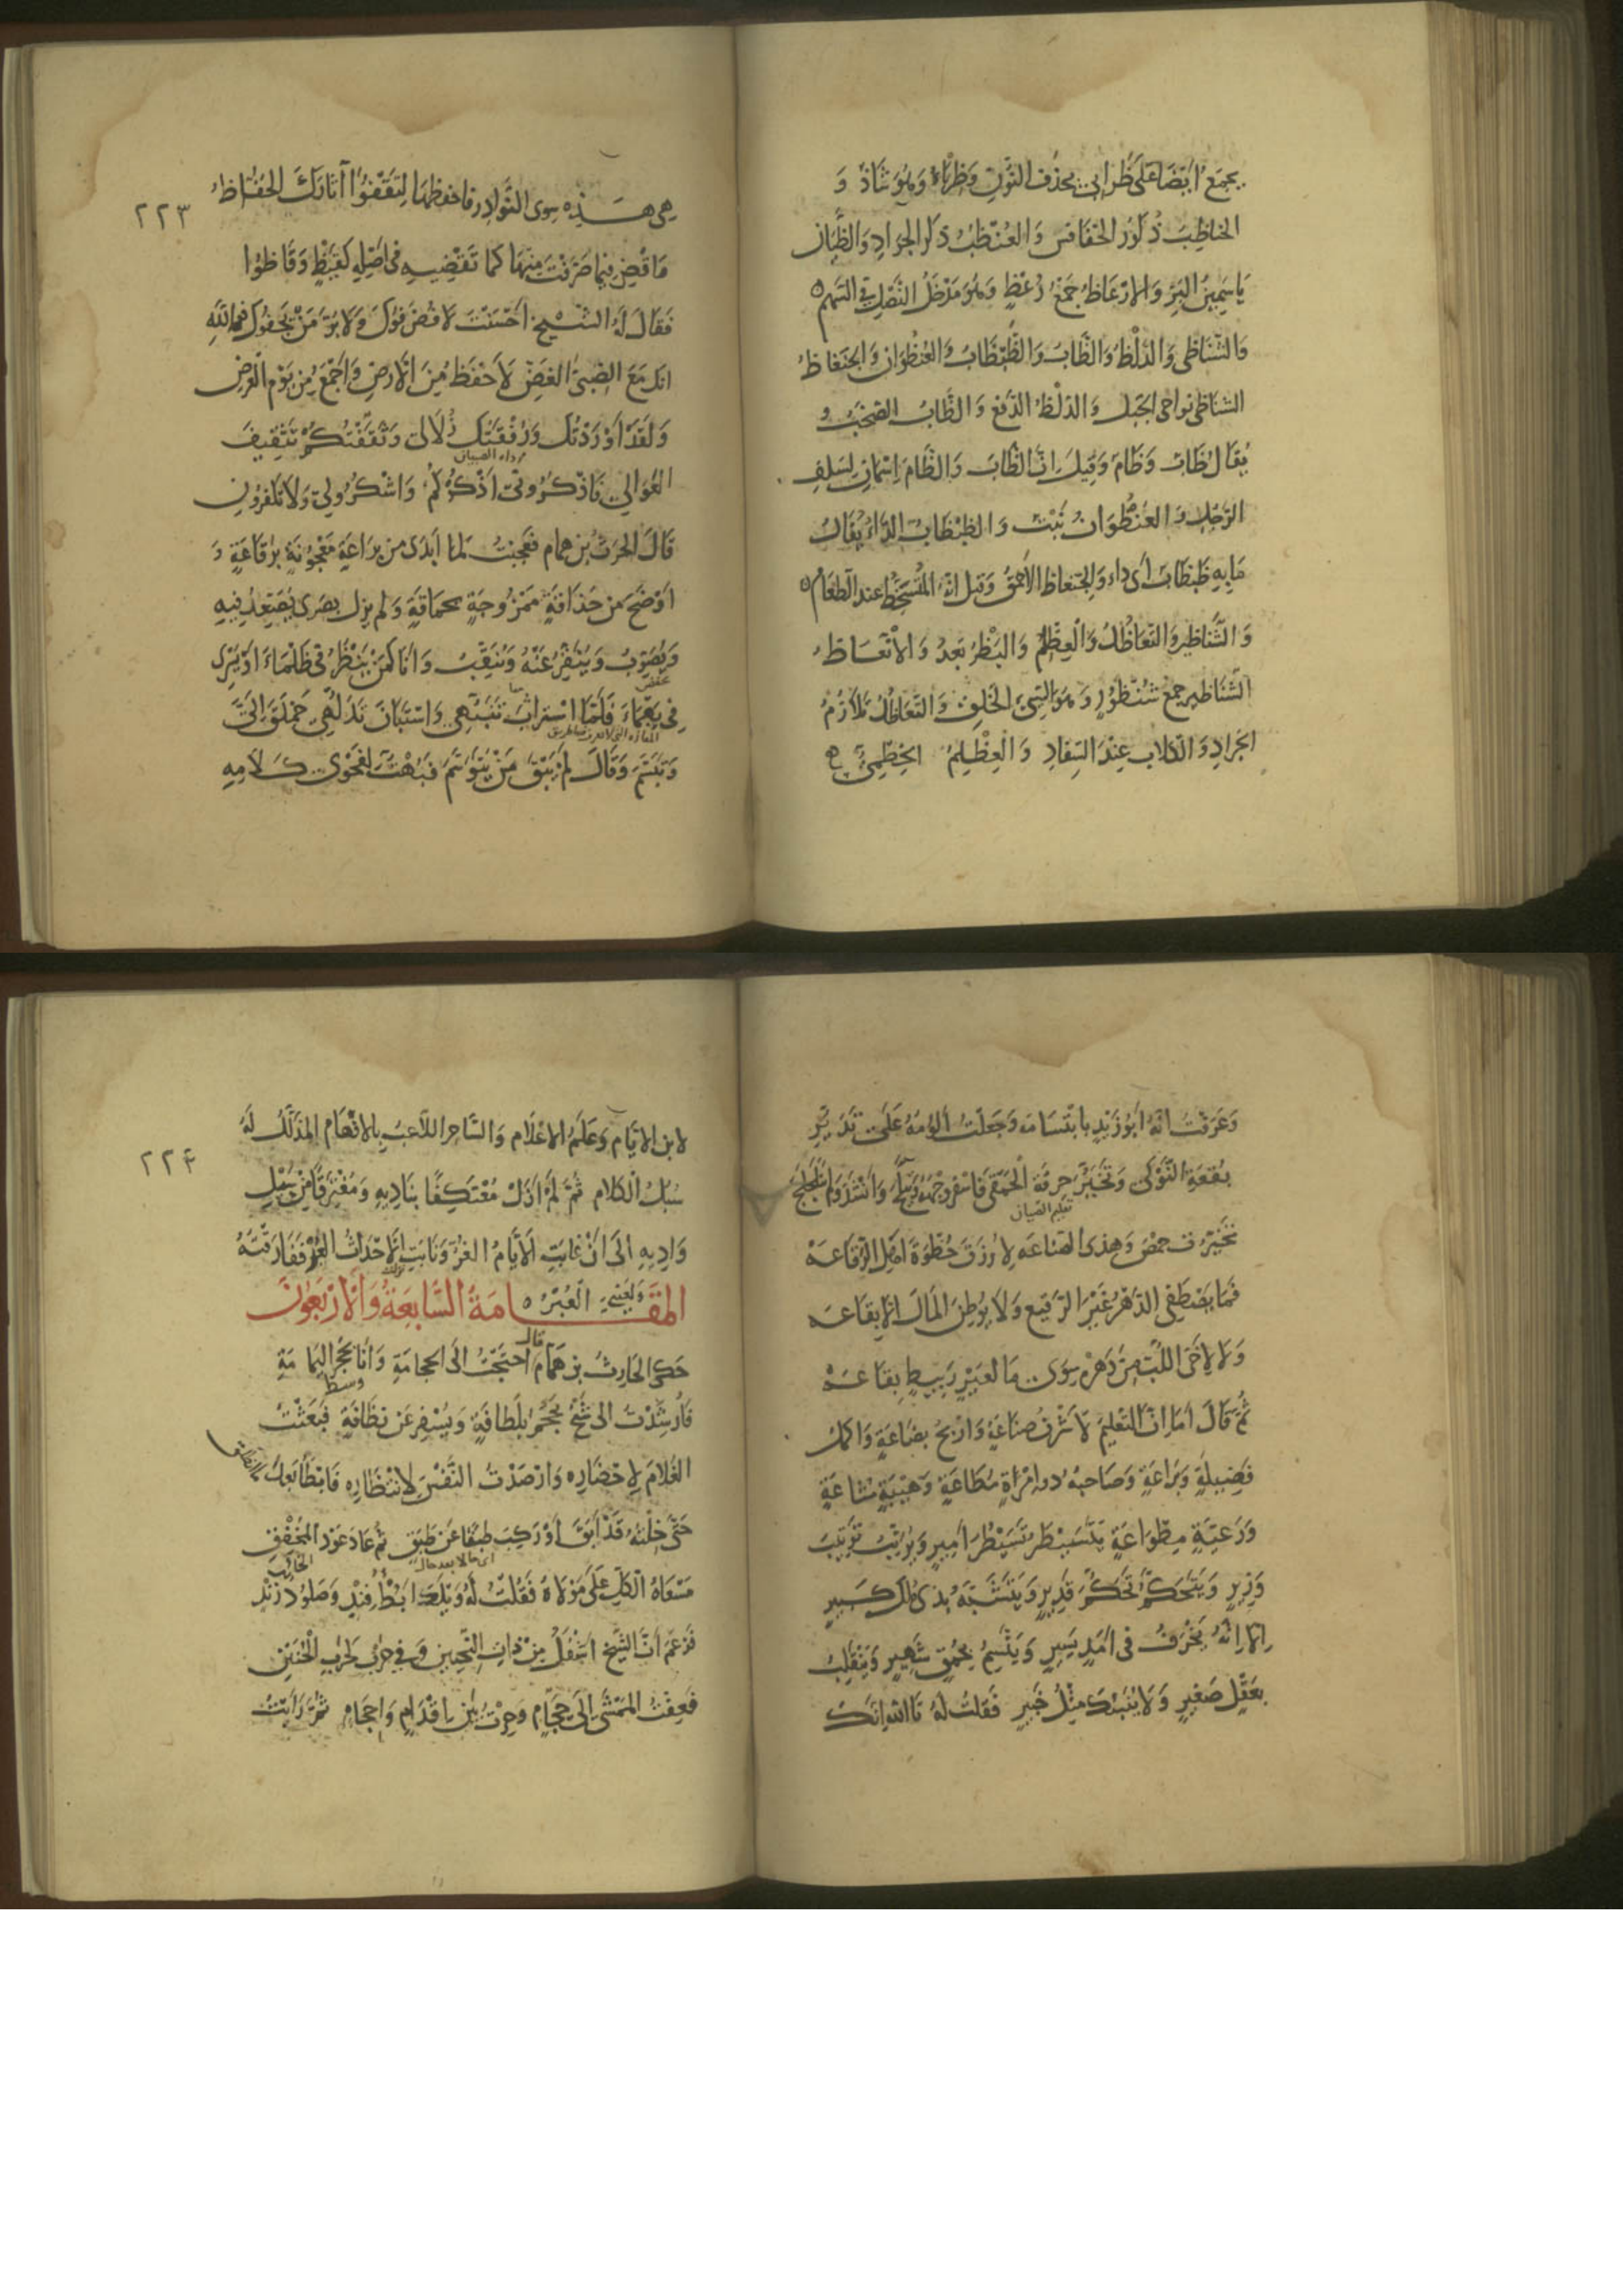 يجمع ايضا على ظرابى بحذف النون وظرباء وهو شاذ و
الحناظب ذكور الخنافس والعنظب ذكر الجراد والظيان
ياسمين البر والارعاظ جمع رعظ وهو مدخل النصل في السهم ه
والشناظى والدلظ والظاب والظبظاب والعنظوان والجنعاظ
الشناظى نواحى الجبل والدلظ الدفع والظاب الصخب و
يقال ظاب وظام وقيل ان الظاب والظام اسمان لسلف
الرجل والعنظوان نبت والظبظاب الداء يقال
ما به ظبظاب اى داء والجنعاظ الاحمق وقيل انه المتسخط عند الطعام ه
والشناظير والتعاظل والعظلم والبظر بعد والانعاظ
الشناظير جمع شنظور وهو السيئ الخلق والتعاظل تلازم
الجراد والكلاب عند السفاد والعظلم الخطمى
٢٢٣
هى هذه سوى النوادر فاحفظها لتقفوا آثارك الحفاظ
فاقض فيما صرفت منها كما تقضيه فى اصله كقيظ وقاظوا
فقال له الشيخ احسنت لا فض فوك ولا بر من يجفوك فوالله
انك مع الصبى الغض لاحفظ من الارض واجمع من يوم العرض
ولقد اوردتك ورفقتك زلالى وثقفتكم تثقيف
العوالى فاذكرونى اذكركم واشكروا لى ولا تكفرون
قال الحرث بن همام فعجبت لما ابدى من براعة معجونة برقاعة و
اوضح من حذاقة ممزوجة بحماقة ولم يزل بصرى يصعد فيه
ويصوب وينقر عنه وينقب وانا كمن ينظر فى ظلماء او يسرى
فى يهماء فلما استراث تنبهى واستبان تدلهى حملق الى
وتبسم وقال لم يبق من يتوسم فبهت لفحوى كلامه
وعرفت انه ابو زيد بابتسامه وجعلت الومه على تدير
بقعة النوكى وتخير حرفة الحمقى فاسفر وجهه وانشد
تعليم الصبيان
تخيرت حمص وهذى الصناعه لارزق حظوة اهل الرقاعه
فما يصطفى الدهر غير الرقيع ولا يوطن المال الا بقاعه
ولا لاخى اللب من دهره سوى ما لعير ربيط بقاعه
ثم قال اما ان التعليم لاشرف صناعة واربح بضاعة واكمل
فضيلة وبراعة وصاحبه ذو امرأة مطاعة وهيبة مشاعة
ورعية مطواعة يتسيطر تسيطر امير ويرتب ترتيب
وزير ويتحكم تحكم قدير ويتشبه بذى ملك كبير
الا انه يخرف فى امد يسير ويتسم بحمق شهير ويتقلب
بعقل صغير ولا ينبئك مثل خبير فقلت له تالله انك
٢٢٤
لابن الايام وعلم الاعلام والساحر اللاعب بالافهام المذلل له
سبل الكلام ثم لم ازل معتكفا بناديه ومغترفا من سيل
واديه الى ان غابت الايام الغر ونابت الاحداث الغبر ففارقته
ولعينى العبر ه
المقامة السابعة والاربعون
حكى الحارث بن همام قال احتجت الى الحجامة وانا بحجر اليمامة
فارشدت الى شيخ يحجم بلطافة ويسفر عن نظافة فبعثت
الغلام لاحضاره وارصدت النفس لانتظاره فابطأ بعد ما انطلق
حتى خلته قد ابق او ركب طبقا عن طبق ثم عاد عود المخفق
اى حالا بعد حال الخائب
مسعاه الكل على مولاه فقلت له ويلك ابطء فند وصلود زند
فزعم ان الشيخ اشغل من ذات النحيين وفى حرب كحرب حنين
فعفت الممشى الى حجام وحرت بين اقدام واحجام ثم رايت